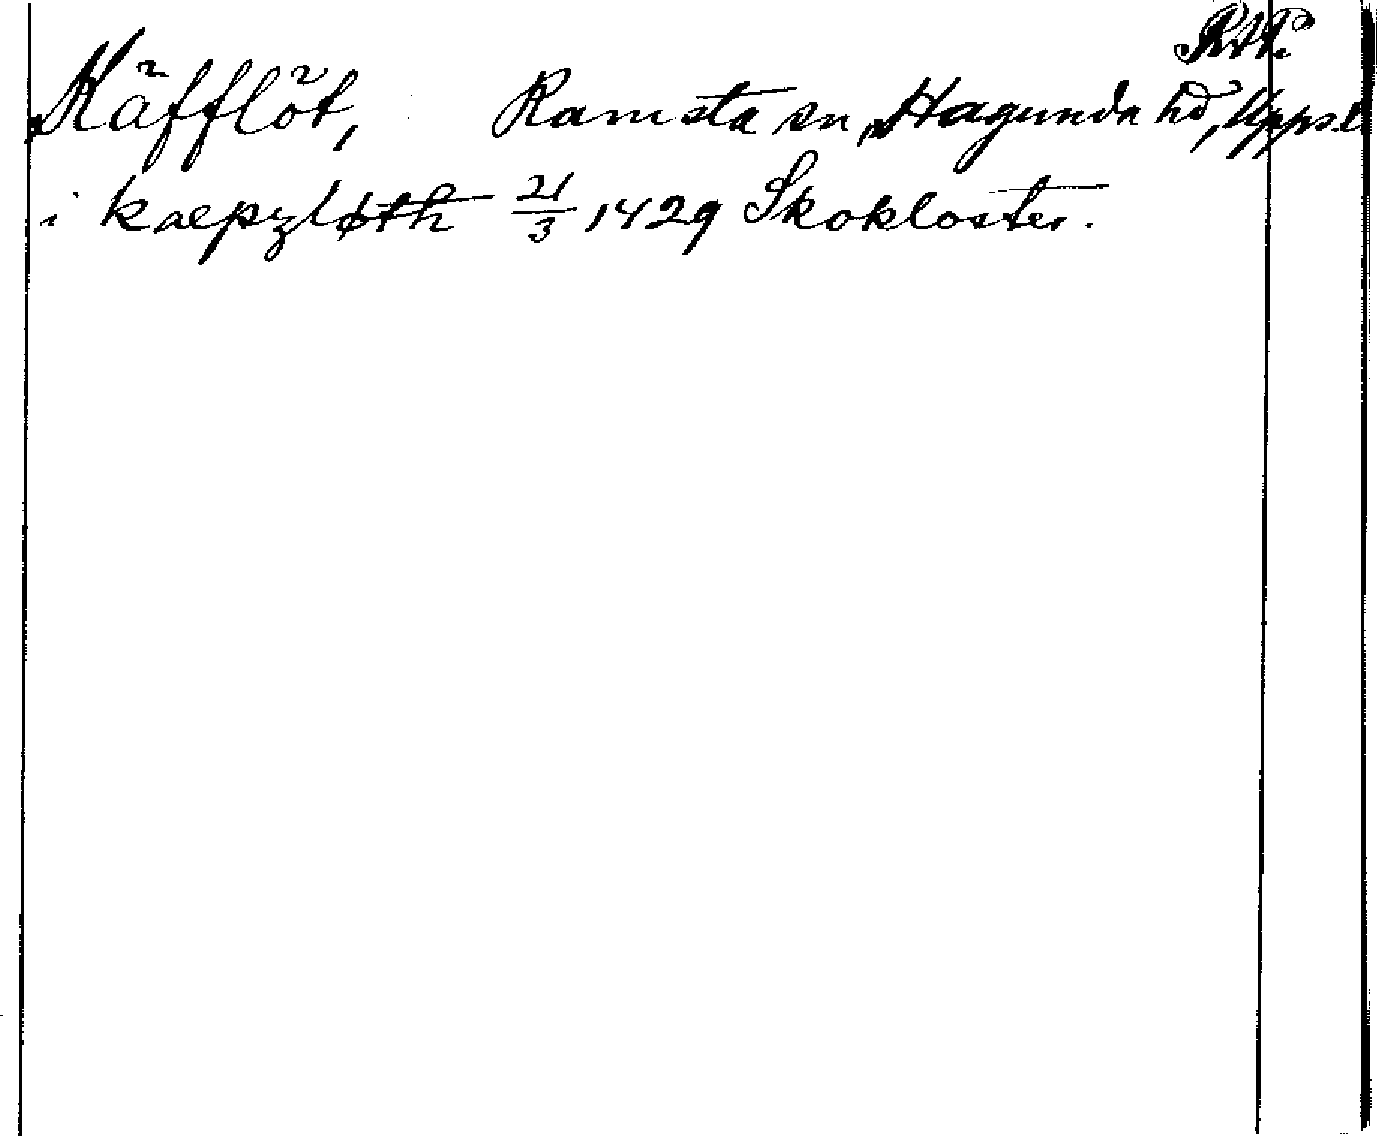 Käfflöt, Ramsta sn, Hagunda hd, Upps.l
i kaepzløth 21/3 1429 Skokloster.